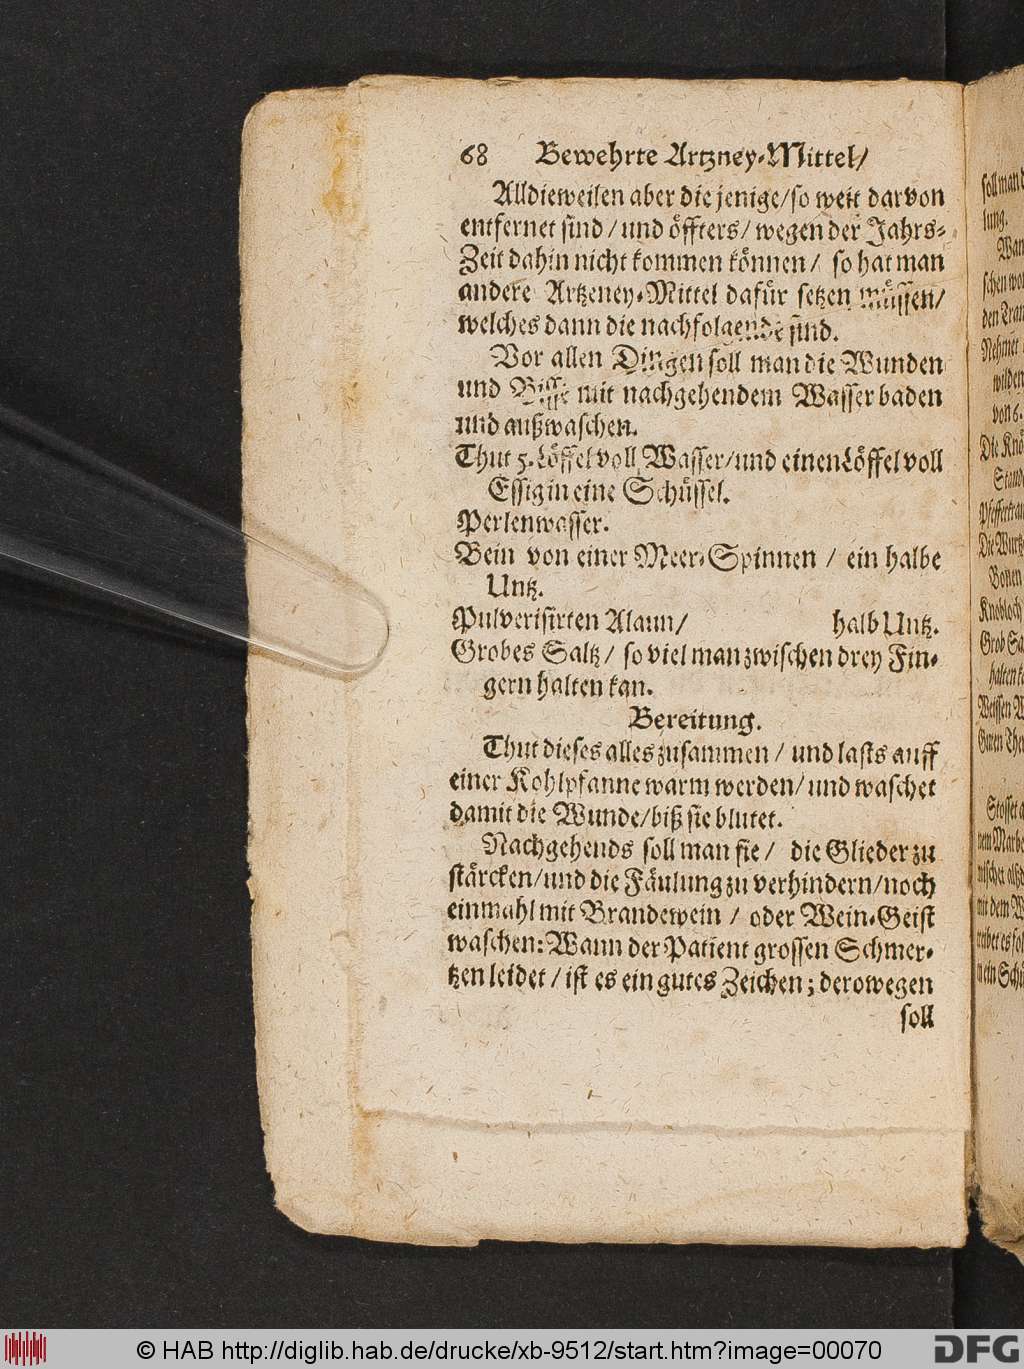 68 Bewehrte Artzney-Mittel/
Alldieweilen aber die jenige/so weit darvon
entfernet sind/und öffters/wegen der Jahrs-
Zeit dahin nicht kommen können/ so hat man
andere Artzeney-Mittel dafür setzen müssen/
welches dann die nachfolgende sind.
Vor allen Dingen soll man die Wunden
und Bisse mit nachgehendem Wasser baden
und außwaschen.
Thut 5. Löffel voll Wasser/und einen Löffel voll
Essig in eine Schüssel.
Perlenwasser.
Bein von einer Meer-Spinnen / ein halbe
Untz.
Pulverisirten Alaun/ halb Untz.
Grobes Saltz/ so viel man zwischen drey Fin-
gern halten kan.
Bereitung.
Thut dieses alles zusammen / und lasts auff
einer Kohlpfanne warm werden/und waschet
damit die Wunde/biß sie blutet.
Nachgehends soll man sie / die Glieder zu
stärcken/und die Fäulung zu verhindern/noch
einmahl mit Brandewein / oder Wein-Geist
waschen: Wann der Patient grossen Schmer-
tzen leidet / ist es ein gutes Zeichen; derowegen
soll
soll man
lung.
Wan
schen
den Tran
Nehmet
wilden
von 6.
Die Knö
Staud
Pfefferkrau
Die Wurtz
Bonen
Knobloch
Grob Sa
halten k
Weissen W
Guten The
Stosset a
nem Marbe
mit dem W
ein Schü
© HAB http://diglib.hab.de/drucke/xb-9512/start.htm?image=00070
DFG